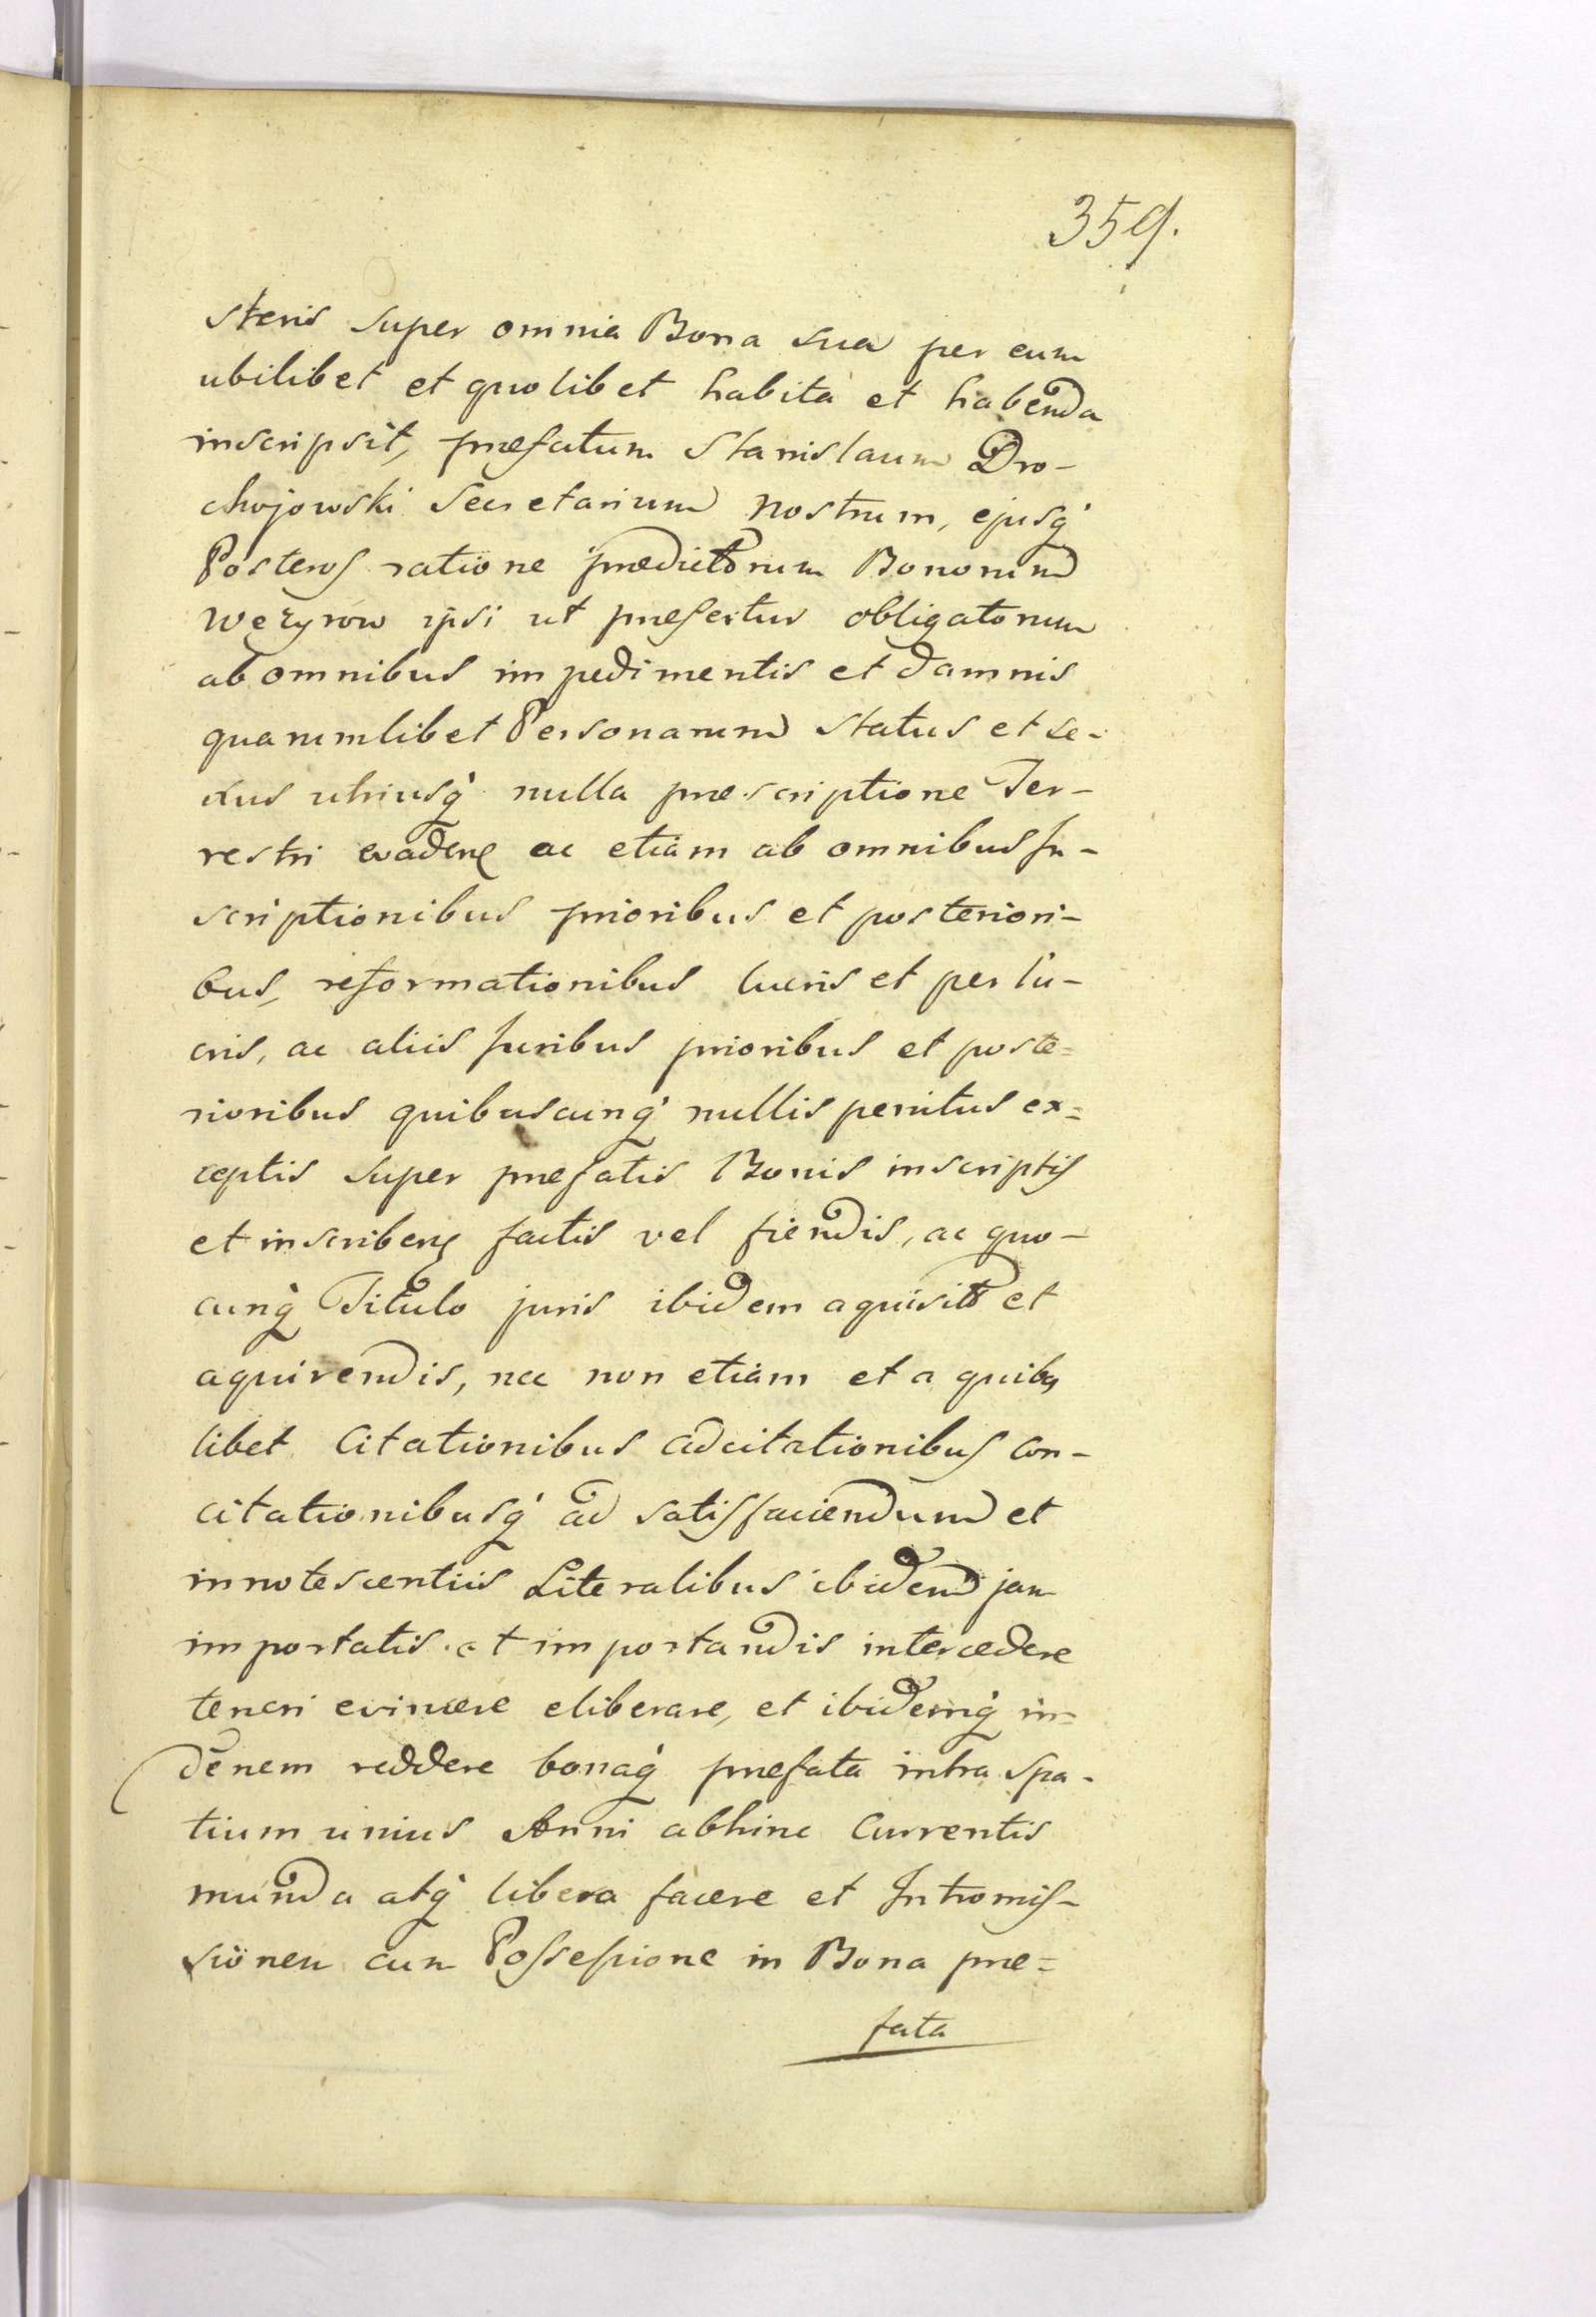 359.
steris super omnia Bona sua per eum
ubilibet et quolibet habita et habenda
inscripsit, præfatum Stanislaum Dro-
chojowski Secretarium nostrum, ejusq́
Posteros ratione prædictorum Bonorum
Węzyrow ipsi ut præfertur obligatorum
ab omnibus impedimentis et damnis
quarumlibet Personarum status et se-
xus utriusq́ nulla præscriptione Ter-
restri evadere ac etiam ab omnibus In-
scriptionibus prioribus et posteriori-
bus, reformationibus lucris et perlu-
cris, ac aliis Juribus prioribus et poste=
rioribus quibuscunq́ nullis penitus ex=
ceptis super præfatis Bonis inscriptis
et inscriben factis vel fiendis, ac quo-
cunq́ Titulo juris ibidem aquisito et
aquirendis, nec non etiam et a quibus
libet Citationibus adcitationibus con-
citationibusq́ ad satisfaciendum et
innotescentiis Literalibus ibidem jam
importatis et importandis intercedere
teneri evincere eliberare, et ibidemq́ in=
denem reddere bonaq́ præfata intra spa-
tium unius Anni abhinc Currentis
munda atq́ libera facere et Intromis-
sionem cum Possessione in Bona præ=
fata